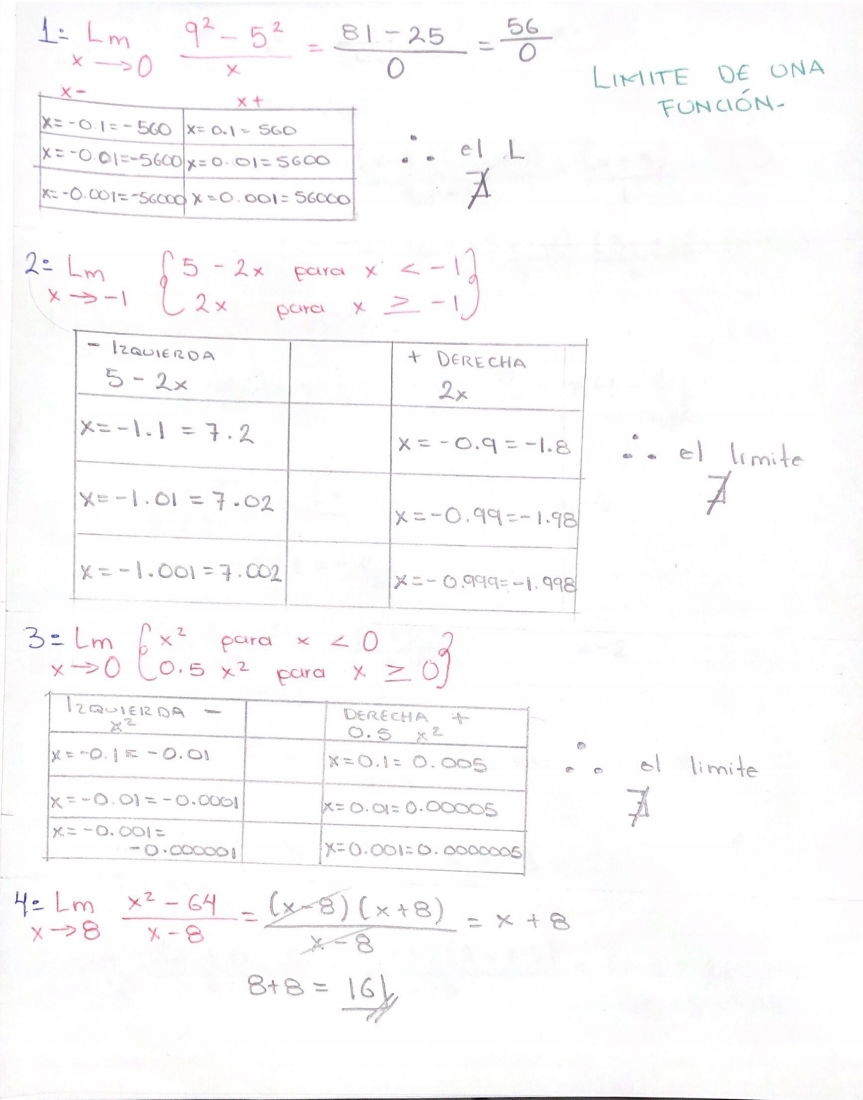 1= Lm x→0 9² - 5² / x = 81 - 25 / 0 = 56 / 0
LIMITE DE UNA
FUNCIÓN-
x- x+
x=-0.1=-560 x=0.1=560
x=-0.01=-5600 x=0.01=5600
x=-0.001=-56000 x=0.001=56000
∴ el L
∄
2= Lm x→-1 { 5 - 2x para x < -1
2x para x ≥ -1 }
- IZQUIERDA + DERECHA
5 - 2x 2x
x=-1.1 = 7.2 x=-0.9=-1.8
x=-1.01 = 7.02 x=-0.99=-1.98
x=-1.001=7.002 x=-0.999=-1.998
∴ el limite
∄
3= Lm x→0 { x² para x < 0
0.5 x² para x ≥ 0 }
IZQUIERDA - DERECHA +
x² 0.5 x²
x=-0.1=-0.01 x=0.1=0.005
x=-0.01=-0.0001 x=0.01=0.00005
x=-0.001=
-0.000001 x=0.001=0.0000005
∴ el limite
∄
4= Lm x→8 x² - 64 / x - 8 = (x-8)(x+8) / x - 8 = x + 8
8+8 = 16